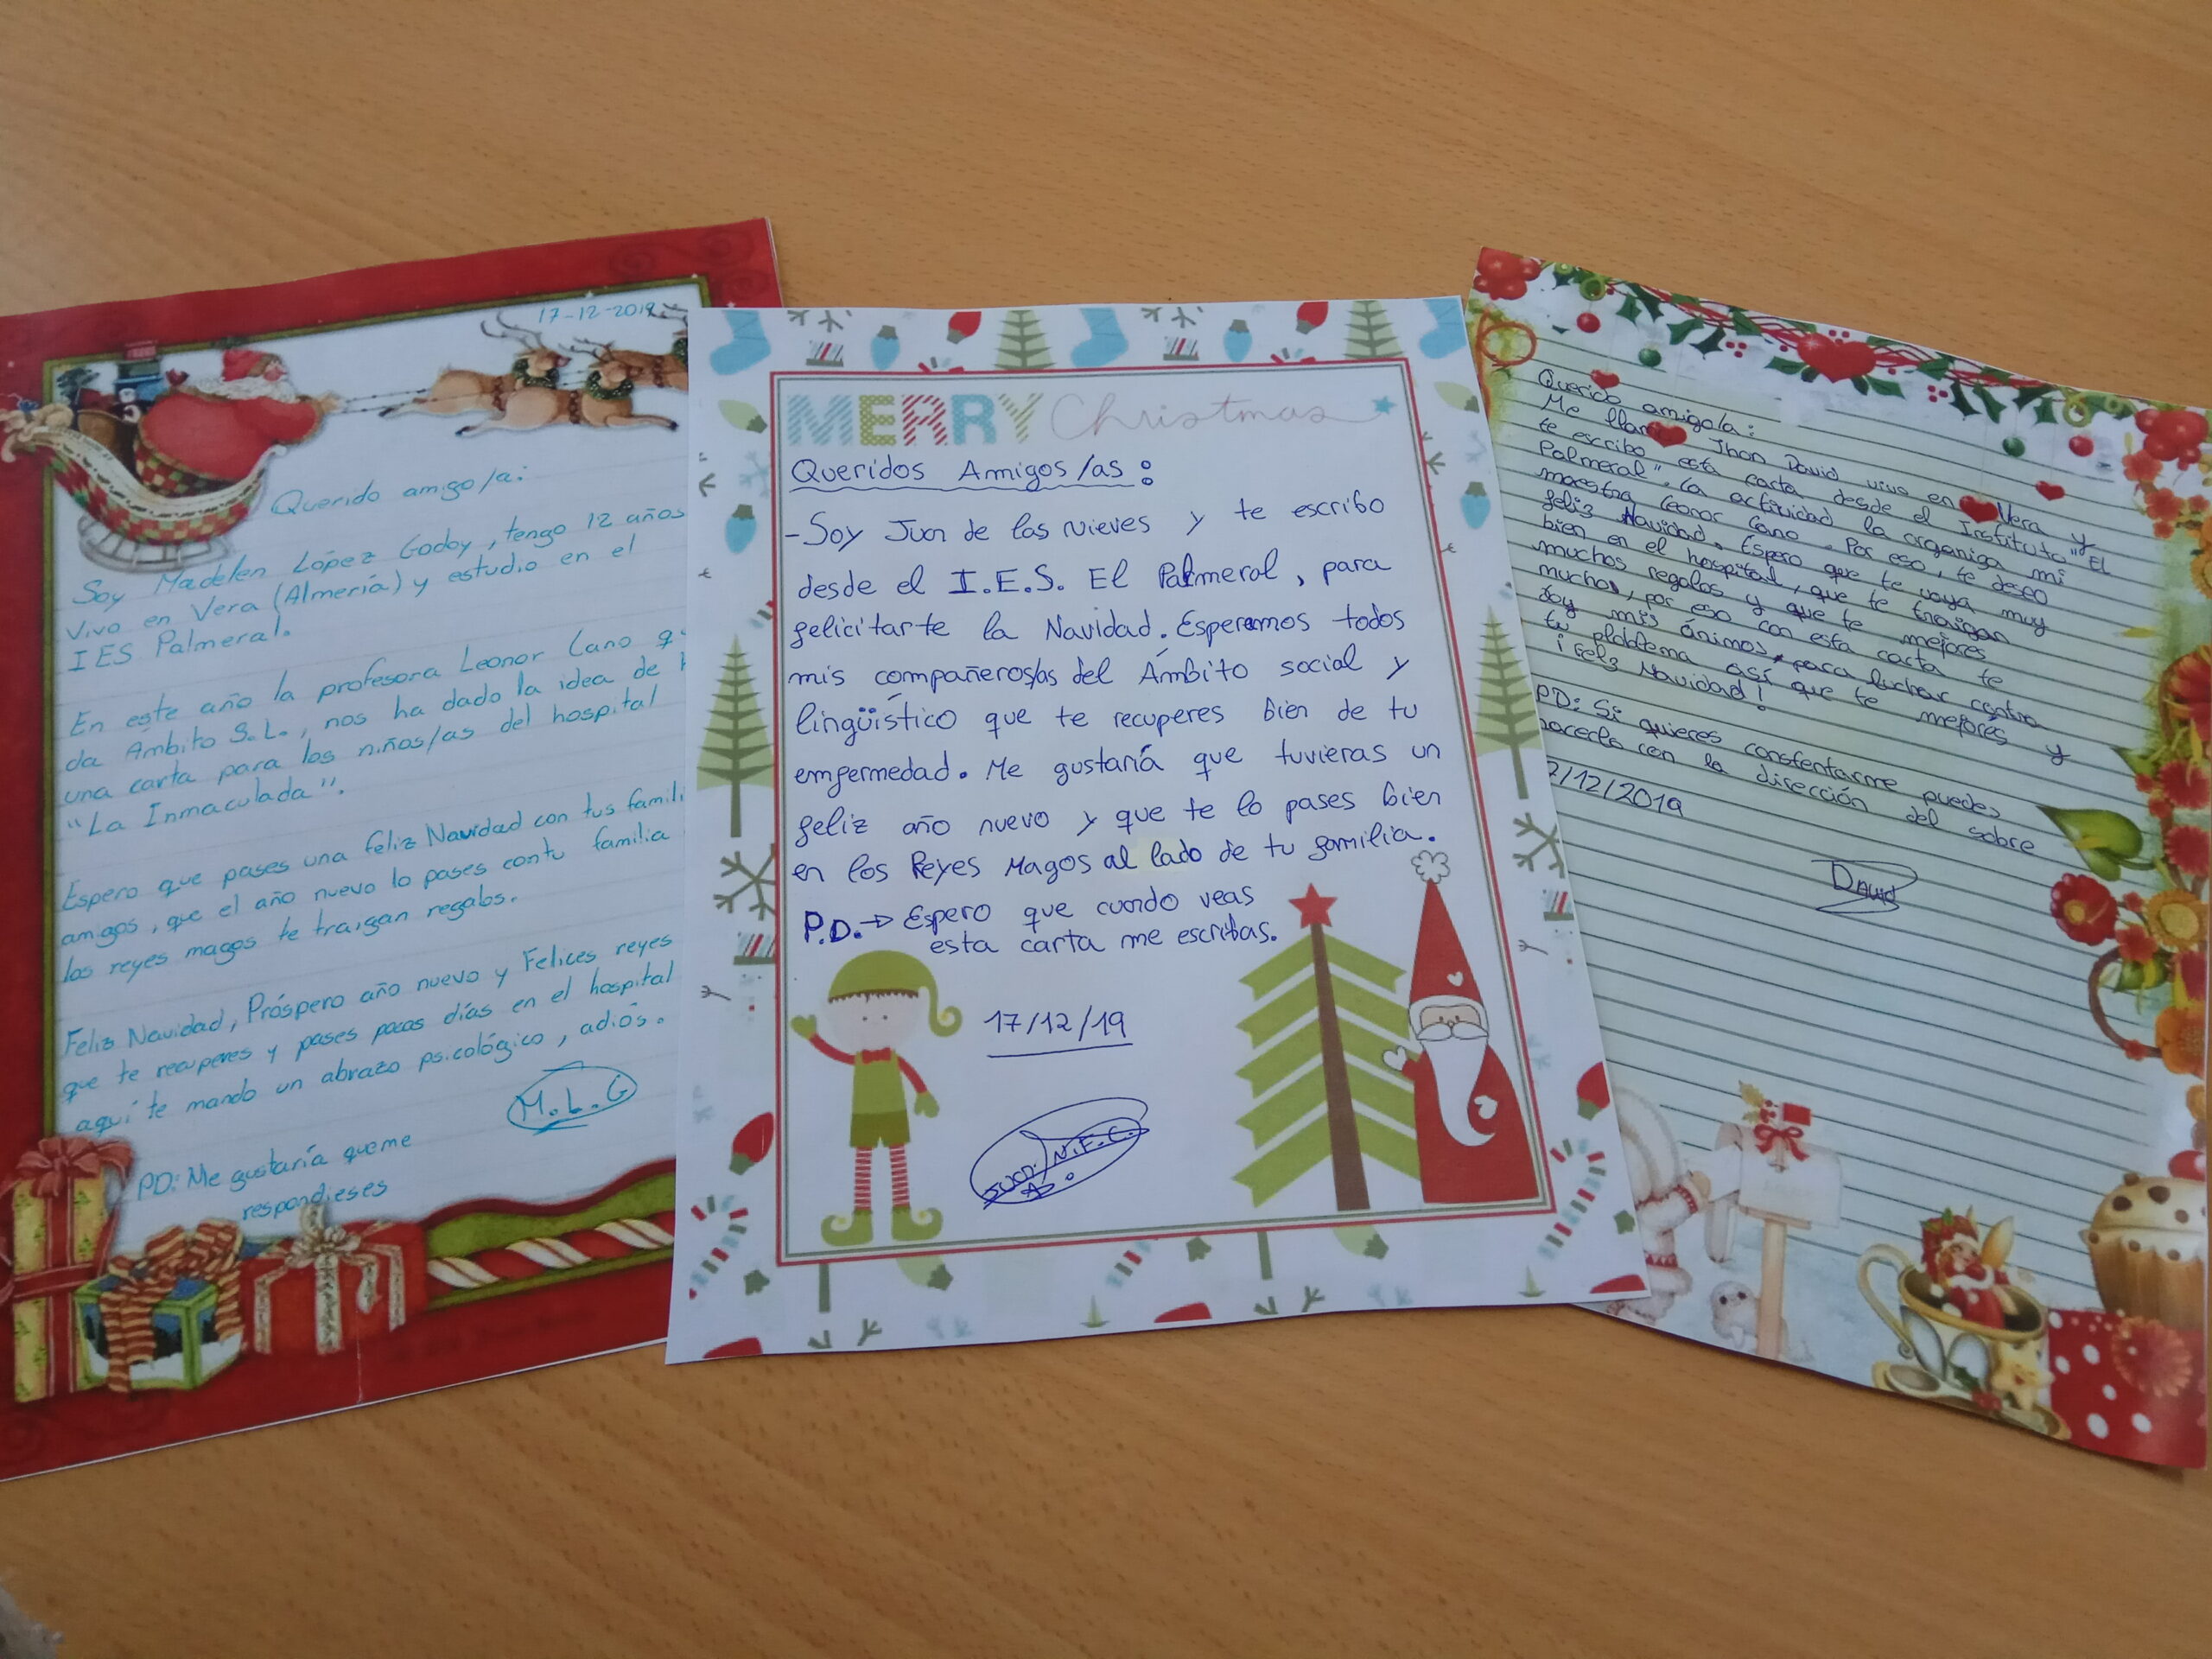 17-12-2019
Querido amigo/a:
Soy Madelen López Godoy, tengo 12 años
Vivo en Vera (Almería) y estudio en el
IES Palmeral.
En este año la profesora Leonor Cano
da Ambito S.L., nos ha dado la idea de
una carta para los niños/as del hospital
"La Inmaculada".
Espero que pases una feliz Navidad con tus famili
amigos, que el año nuevo lo pases contu familia
los reyes magos te traigan regalos.
Feliz Navidad, Próspero año nuevo y Felices reyes
que te recuperes y pases pocos días en el hospital
aquí te mando un abrazo psicológico, adiós.
M.L.G
PD: Me gustaría que me
respondieses
MERRY Christmas
Queridos Amigos/as:
-Soy Juan de las Nieves y te escribo
desde el I.E.S. El Palmeral, para
felicitarte la Navidad. Esperamos todos
mis compañeros/as del Ámbito social y
lingüístico que te recuperes bien de tu
emfermedad. Me gustaría que tuvieras un
feliz año nuevo y que te lo pases bien
en los Reyes Magos al lado de tu familia.
P.D.→ Espero que cuando veas
esta carta me escribas.
17/12/19
Juan N.F.C.
Querido amigo/a:
Me llamo Jhon David vivo en Vera y
te escribo esta carta desde el Instituto "El
Palmeral". La actividad la organiga mi
maestra Leonor Cano. Por eso, te deseo
feliz Navidad. Espero que te vaya muy
bien en el hospital, que te traigan
muchos regalos y que te mejores
mucho, por eso con esta carta te
doy mis ánimos, para luchar contra
tu ploblema así que te mejores y
¡Feliz Navidad!
PD: Si quieres constentarme puedes
hacerlo con la dirección del sobre
2/12/2019
David